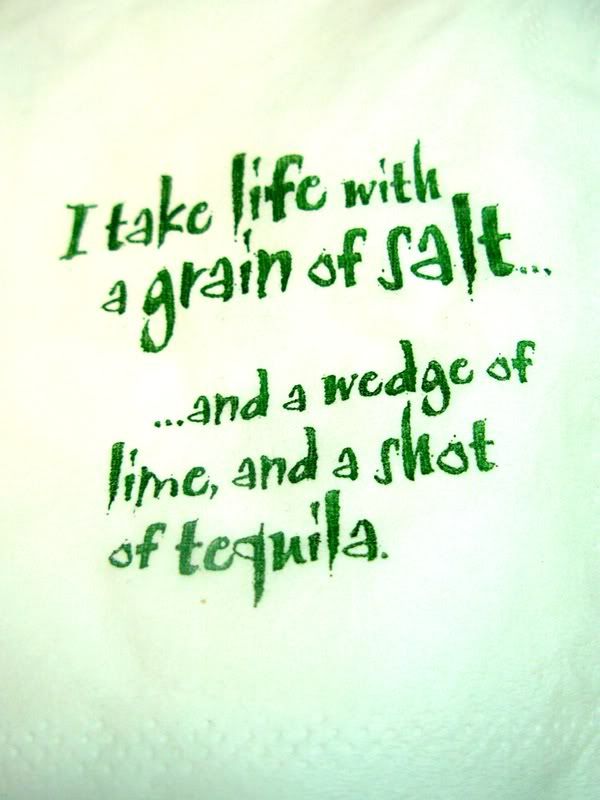 I take life with
a grain of salt...
...and a wedge of
lime, and a shot
of tequila.